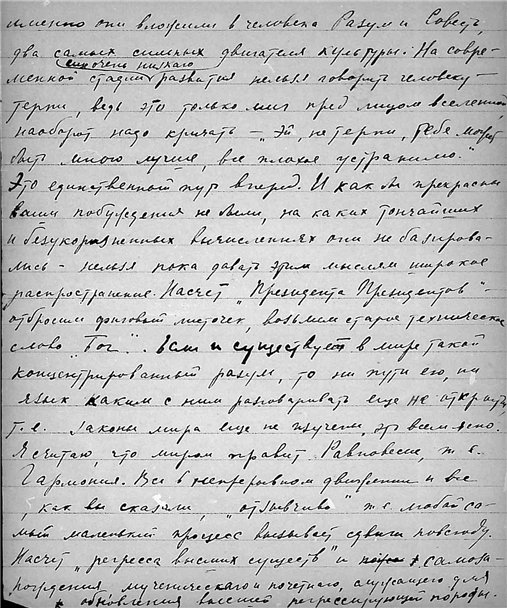 именно они вложили в человека Разум и Совесть,
два самых сильных двигателя культуры. На совре-
еще очень низкаго
менной стадии развития нельзя говорить человеку –
терпи, ведь эти только миг пред лицом вселенной
наоборот надо кричать – "Эй, не терпи, тебе может
быть много лучше, все плохое устранимо."
Это единственный путь вперед. И как бы прекрасны
ваши побуждения не были, на каких тончайших
и безукоризненных вычислениях они не базирова-
лись – нельзя пока давать этим мыслям широкое
распространение. Насчет "Президента Президентов" –
отбросим фиговый листочек, возьмем старое техническое
слово "Бог". Если и существует в мире такой
концентрированный разум, то ни пути его, ни
язык каким с ним разговаривать еще не открыты,
т.е. законы мира еще не изучены, это всем ясно.
Я считаю, что миром правит Равновесие, т.е.
Гармония. Все в непрерывном движении и все
, как вы сказали, "отзывчиво" т.е. любой са-
мый маленький процесс вызывает сдвиги повсюду.
Насчет "регресса высших существ" и самоза-
рождения мученического и почетного, служащего для
обновления высшей регрессирующей породы.